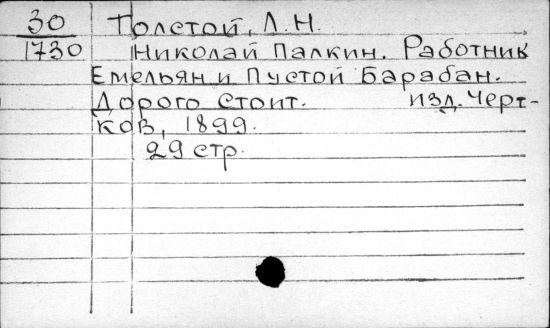 30 Толстой, Л. Н.
1730 Николай Палкин. Работник
Емельян и Пустой Барабан.
Дорого стоит. изд. Черт-
ков, 1899.
29 стр.